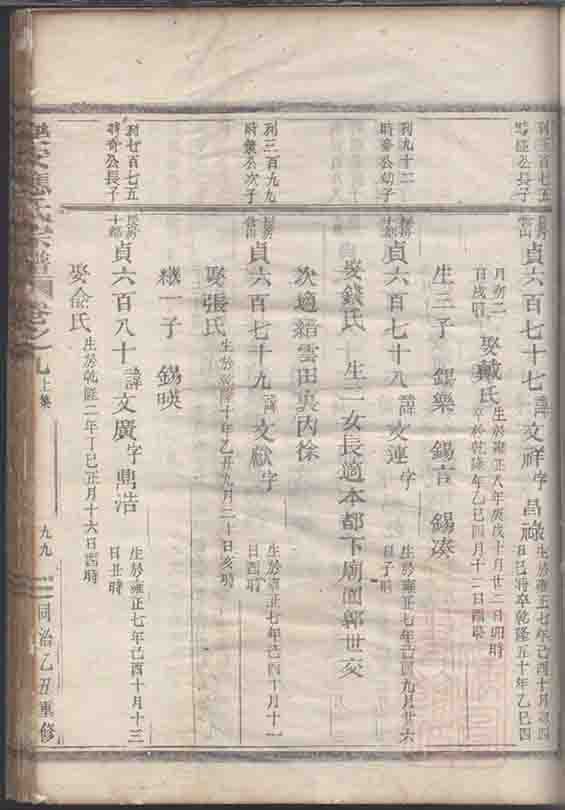 時 公長子
貞六百七十七諱文祥字昌祿
生於雍正七年己酉十月初四
日巳時卒乾隆五十年乙巳四
月初二
日戌時
娶戴氏
生於雍正八年庚戌十月廿二日卯時
卒於乾隆 年乙巳四月十二日酉時
生三子 錫樂 錫言 錫湊
列九十二
時奇公幼子
貞六百七十八諱文連字
生於雍正七年己酉九月廿六
日子時
娶錢氏 生二女長適本都下廟園郭世交
次適縉雲田 內徐
列三百九九
時 公次子
貞六百七十九諱文猷字
生於雍正七年己酉十月十一
日酉時
娶張氏
生於乾隆十年乙丑九月二十日亥時
繼一子 錫暎
列七百七五
時奇公長子
貞六百八十諱文廣字鼎浩
生於雍正七年己酉十月十三
日丑時
娶俞氏
生於乾隆二年丁巳正月十六日酉時
應氏宗譜 卷之九
上集
九九
同治乙丑重修